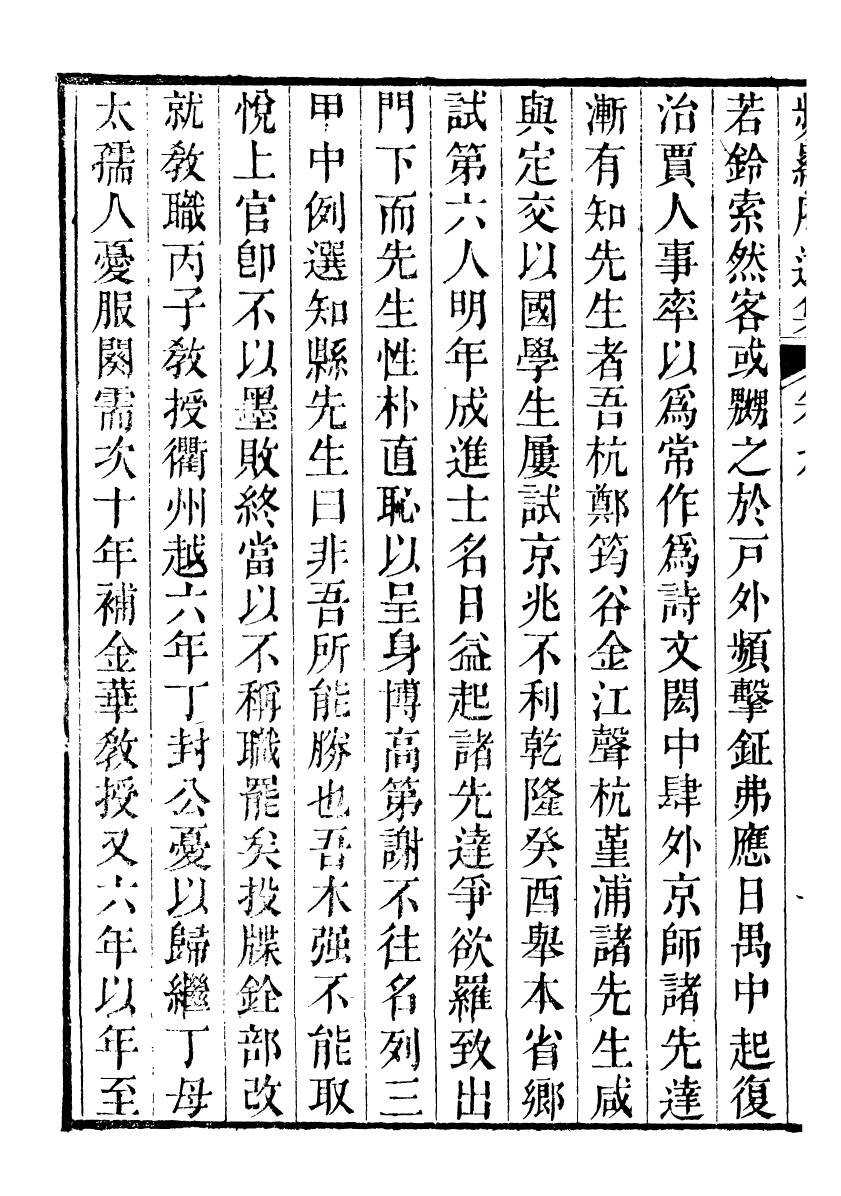 若鈴索然客或嬲之於戸外頻擊鉦弗應日禺中起復
治賈人事率以爲常作爲詩文閎中肆外京師諸先達
漸有知先生者吾杭鄭筠谷金江聲杭堇浦諸先生咸
與定交以國學生屢試京兆不利乾隆癸酉舉本省鄉
試第六人明年成進士名日益起諸先達爭欲羅致出
門下而先生性朴直恥以呈身博高第謝不往名列三
甲中例選知縣先生曰非吾所能勝也吾木强不能取
悅上官卽不以墨敗終當以不稱職罷矣投牒銓部改
就敎職丙子敎授衢州越六年丁封公憂以歸繼丁母
太孺人憂服闋需次十年補金華敎授又六年以年至